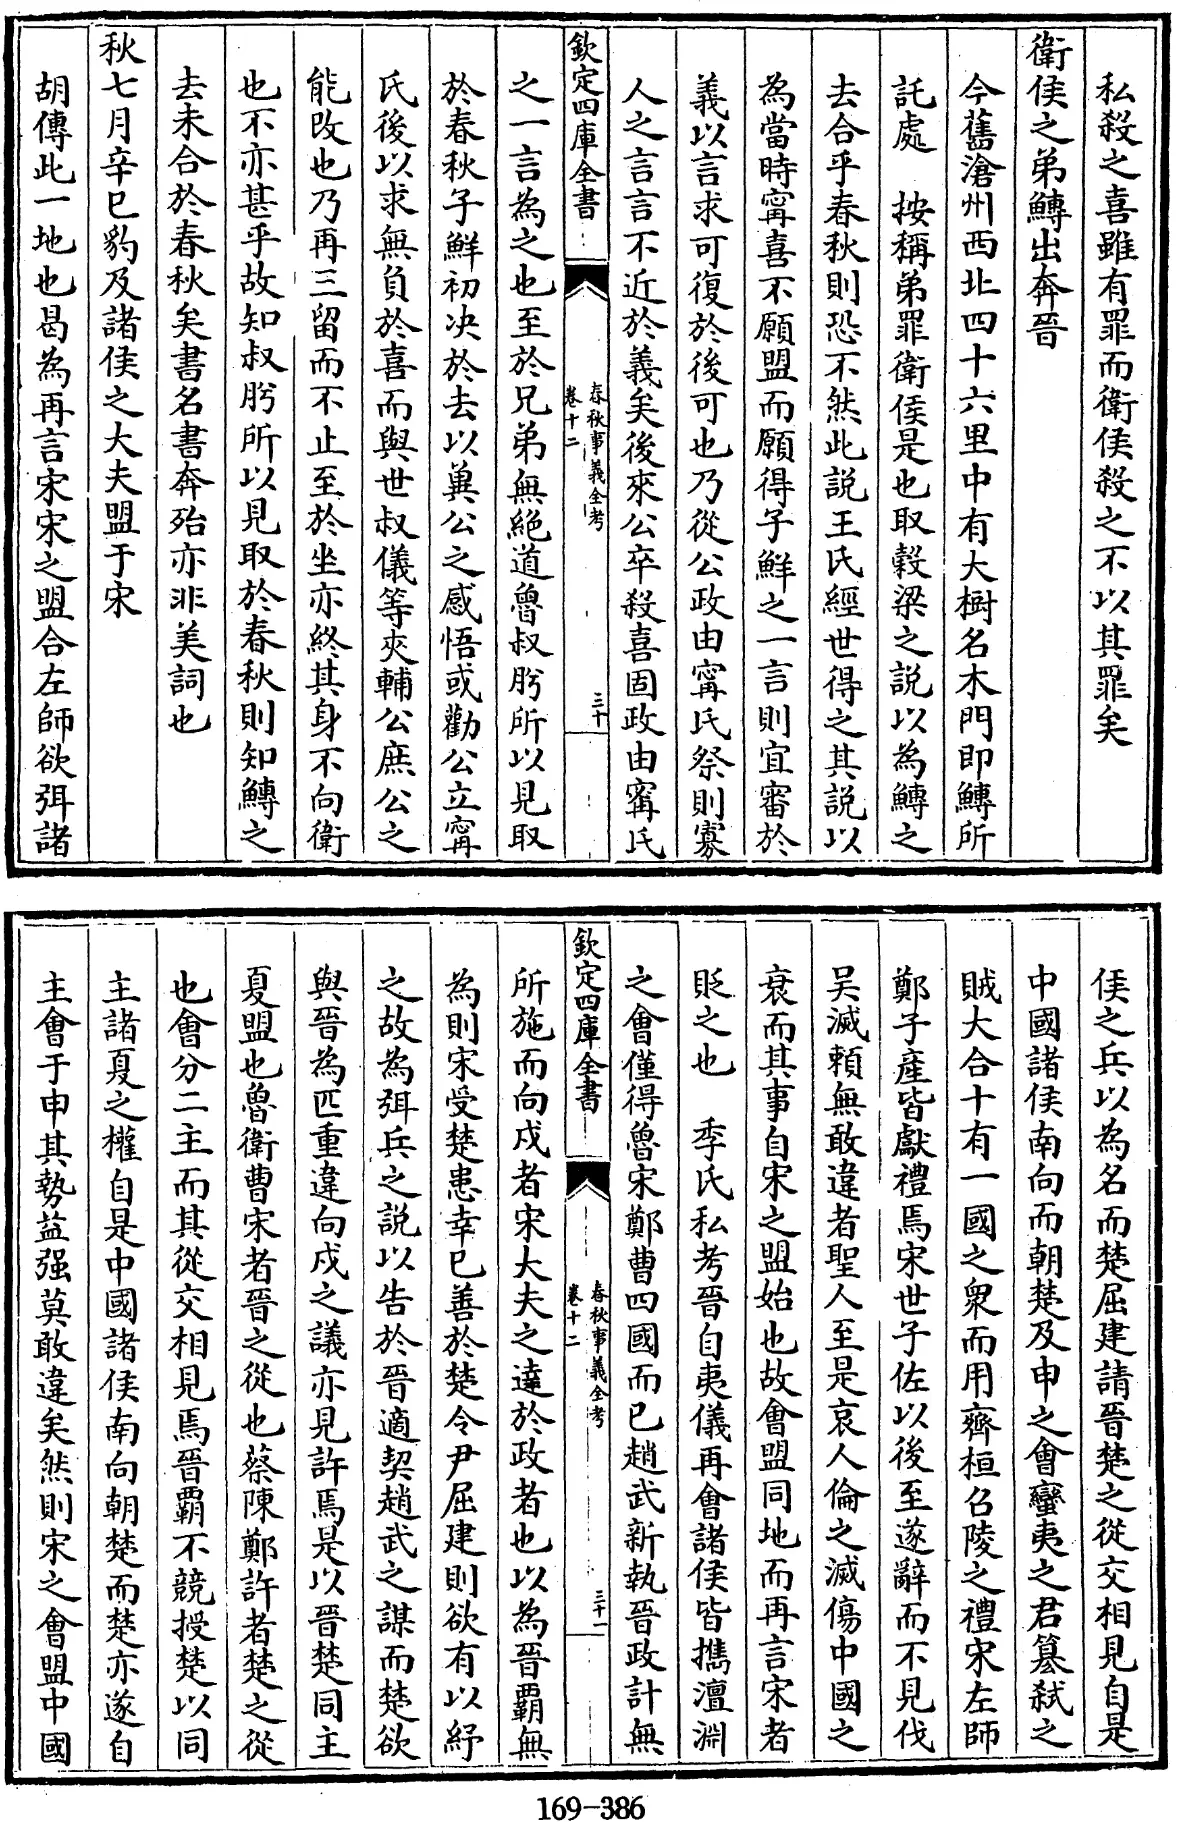 私殺之喜雖有罪而衛侯殺之不以其罪矣
衛侯之弟鱄出奔晉
今舊滄州西北四十六里中有大樹名木門即鱄所
託處　按稱弟罪衛侯是也取穀梁之説以為鱄之
去合乎春秋則恐不然此説王氏經世得之其説以
為當時寗喜不願盟而願得子鮮之一言則宜審於
義以言求可復於後可也乃從公政由寗氏祭則寡
人之言言不近於義矣後來公卒殺喜固政由寗氏
欽定四庫全書
春秋事義全考
卷十二
三十
之一言為之也至於兄弟無絶道魯叔肸所以見取
於春秋子鮮初决於去以兾公之感悟或勸公立寗
氏後以求無負於喜而與世叔儀等夾輔公庶公之
能改也乃再三留而不止至於坐亦終其身不向衛
也不亦甚乎故知叔肸所以見取於春秋則知鱄之
去未合於春秋矣書名書奔殆亦非美詞也
秋七月辛巳豹及諸侯之大夫盟于宋
胡傳此一地也曷為再言宋宋之盟合左師欲弭諸
侯之兵以為名而楚屈建請晉楚之從交相見自是
中國諸侯南向而朝楚及申之會蠻夷之君簒弑之
賊大合十有一國之衆而用齊桓召陵之禮宋左師
鄭子產皆獻禮焉宋世子佐以後至遂辭而不見伐
吴滅賴無敢違者聖人至是哀人倫之滅傷中國之
衰而其事自宋之盟始也故會盟同地而再言宋者
貶之也　季氏私考晉自夷儀再會諸侯皆擕澶淵
之會僅得魯宋鄭曹四國而已趙武新執晉政計無
欽定四庫全書
春秋事義全考
卷十二
三十一
所施而向戌者宋大夫之達於政者也以為晉霸無
為則宋受楚患幸已善於楚令尹屈建則欲有以紓
之故為弭兵之説以告於晉適契趙武之謀而楚欲
與晉為匹重違向戌之議亦見許焉是以晉楚同主
夏盟也魯衛曹宋者晉之從也蔡陳鄭許者楚之從
也會分二主而其從交相見焉晉霸不競授楚以同
主諸夏之權自是中國諸侯南向朝楚而楚亦遂自
主會于申其勢益强莫敢違矣然則宋之會盟中國
169-386